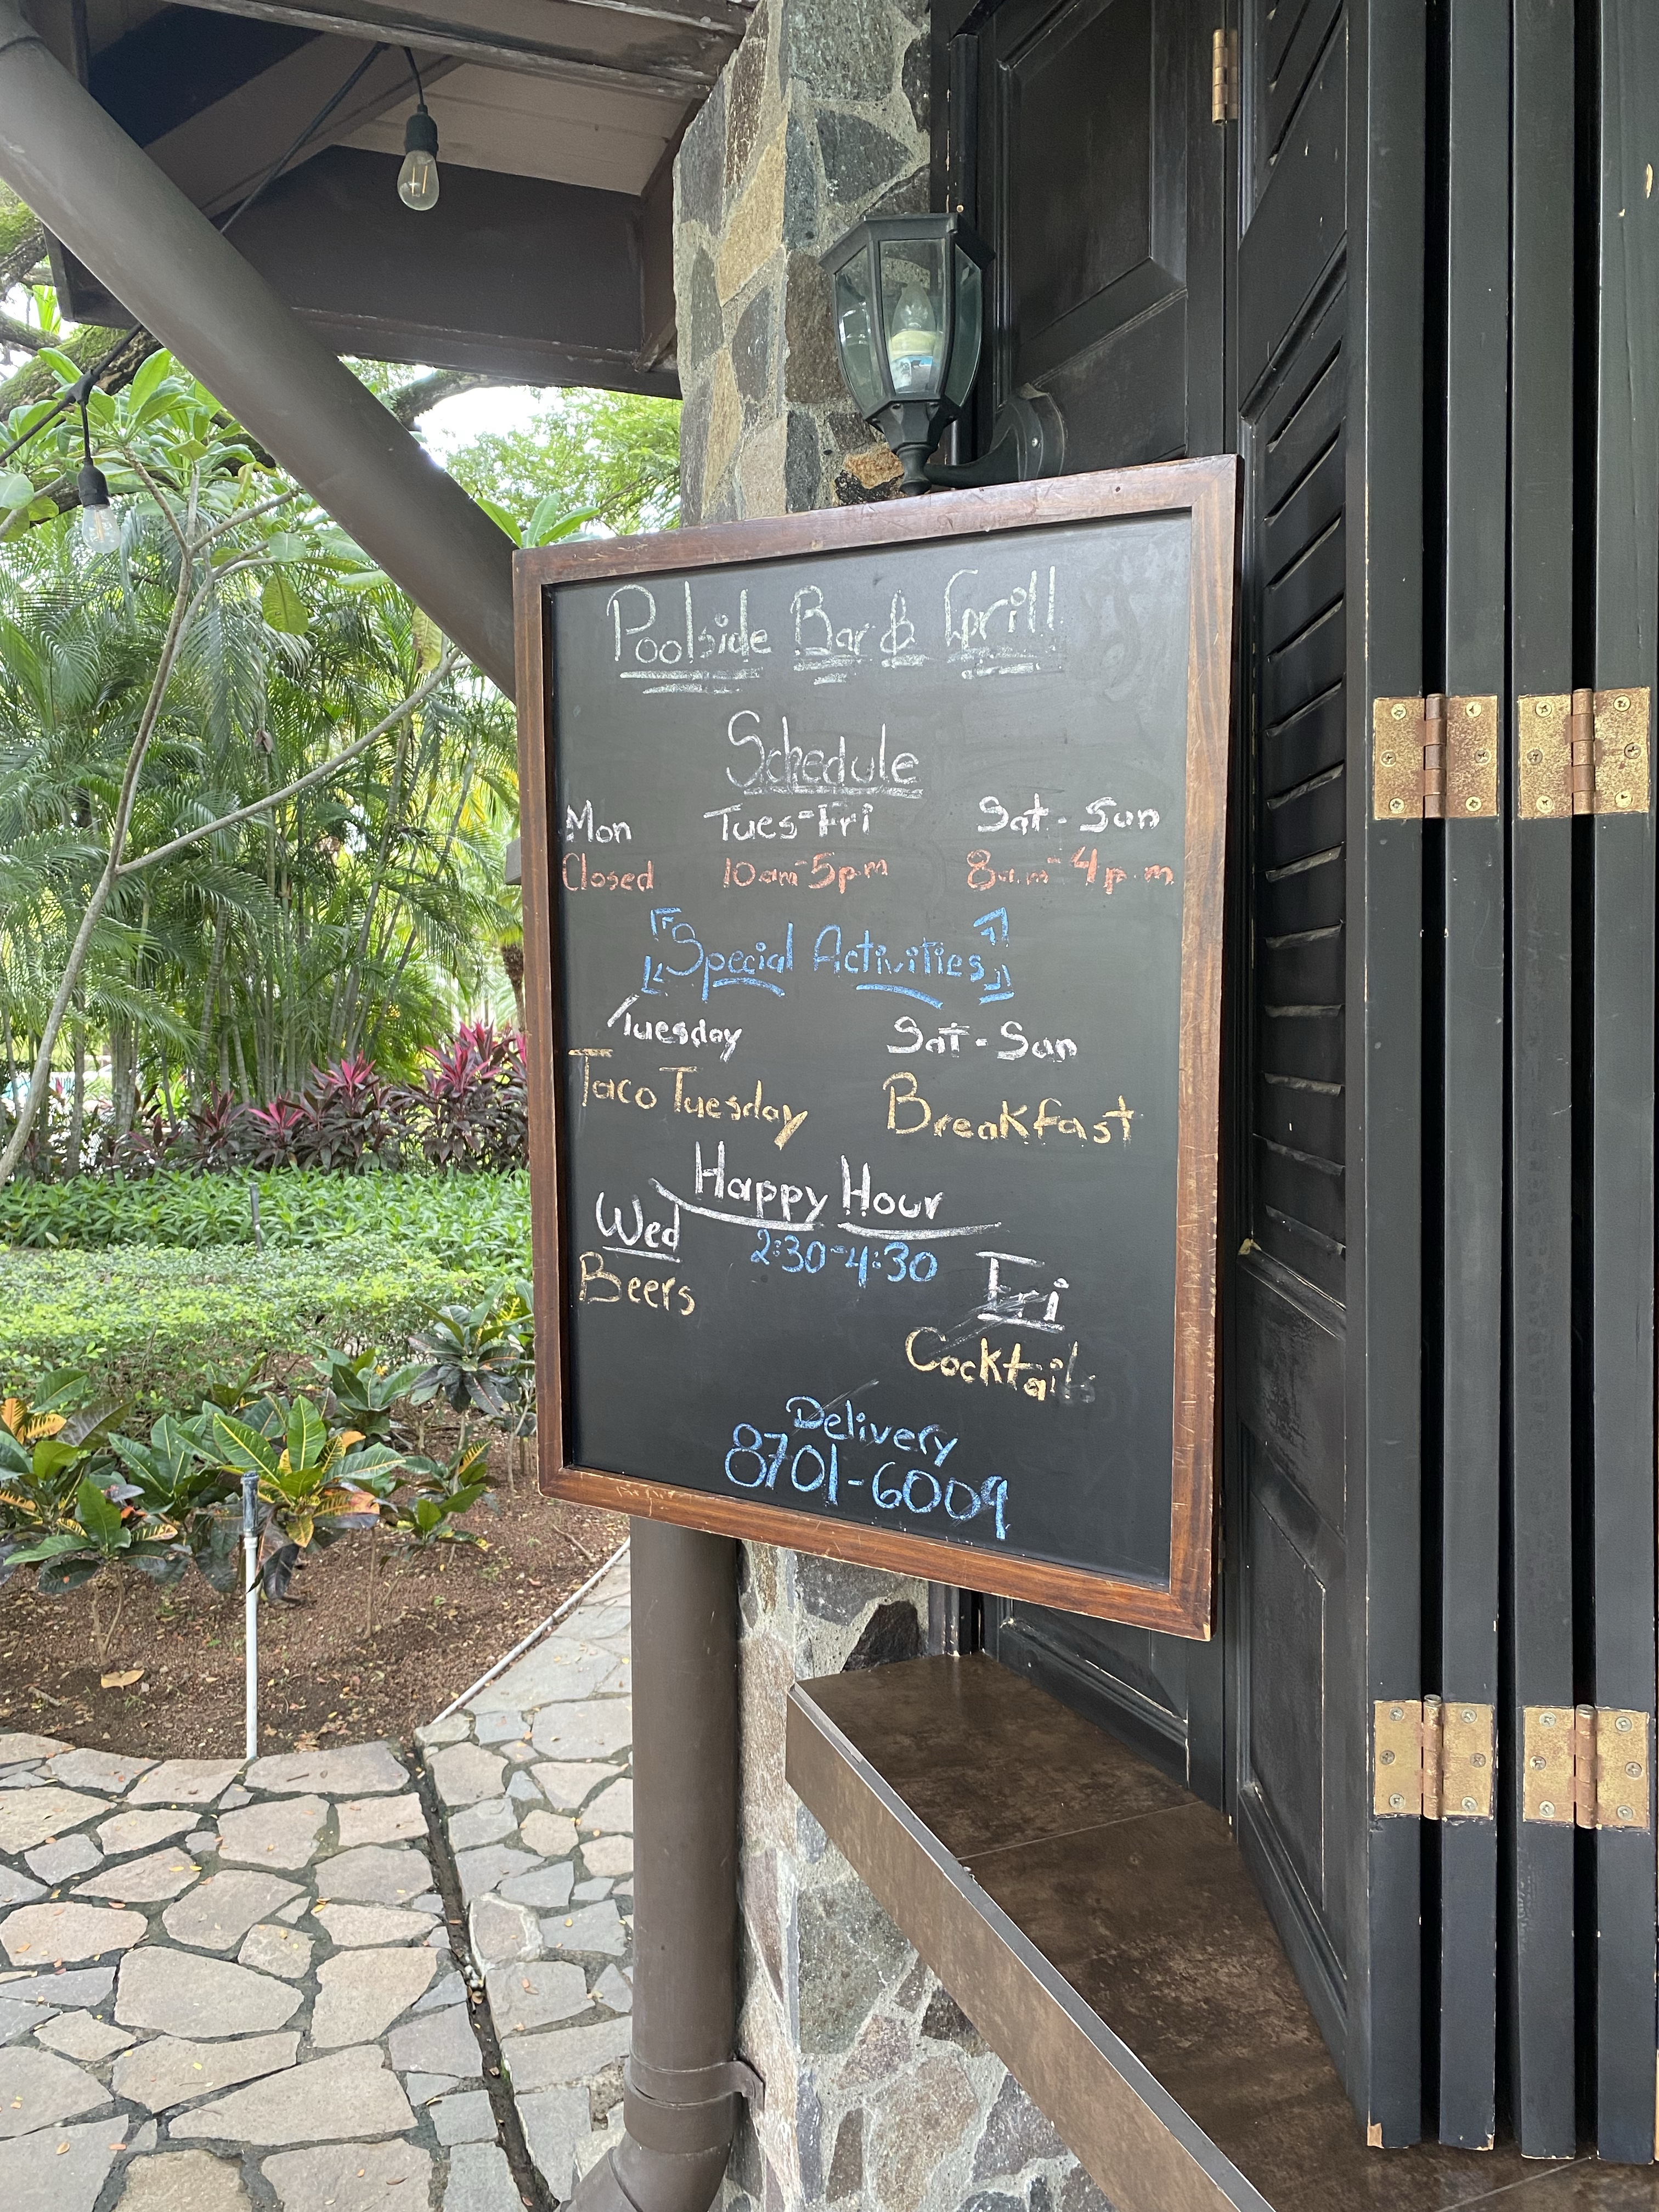 Poolside Bar & Grill
Schedule
Mon Tues-Fri Sat-Sun
Closed 10am-5pm 8a.m-4p.m
Special Activities
Tuesday Sat-Sun
Taco Tuesday Breakfast
Happy Hour
Wed 2:30-4:30 Fri
Beers Cocktails
Delivery
8701-6009